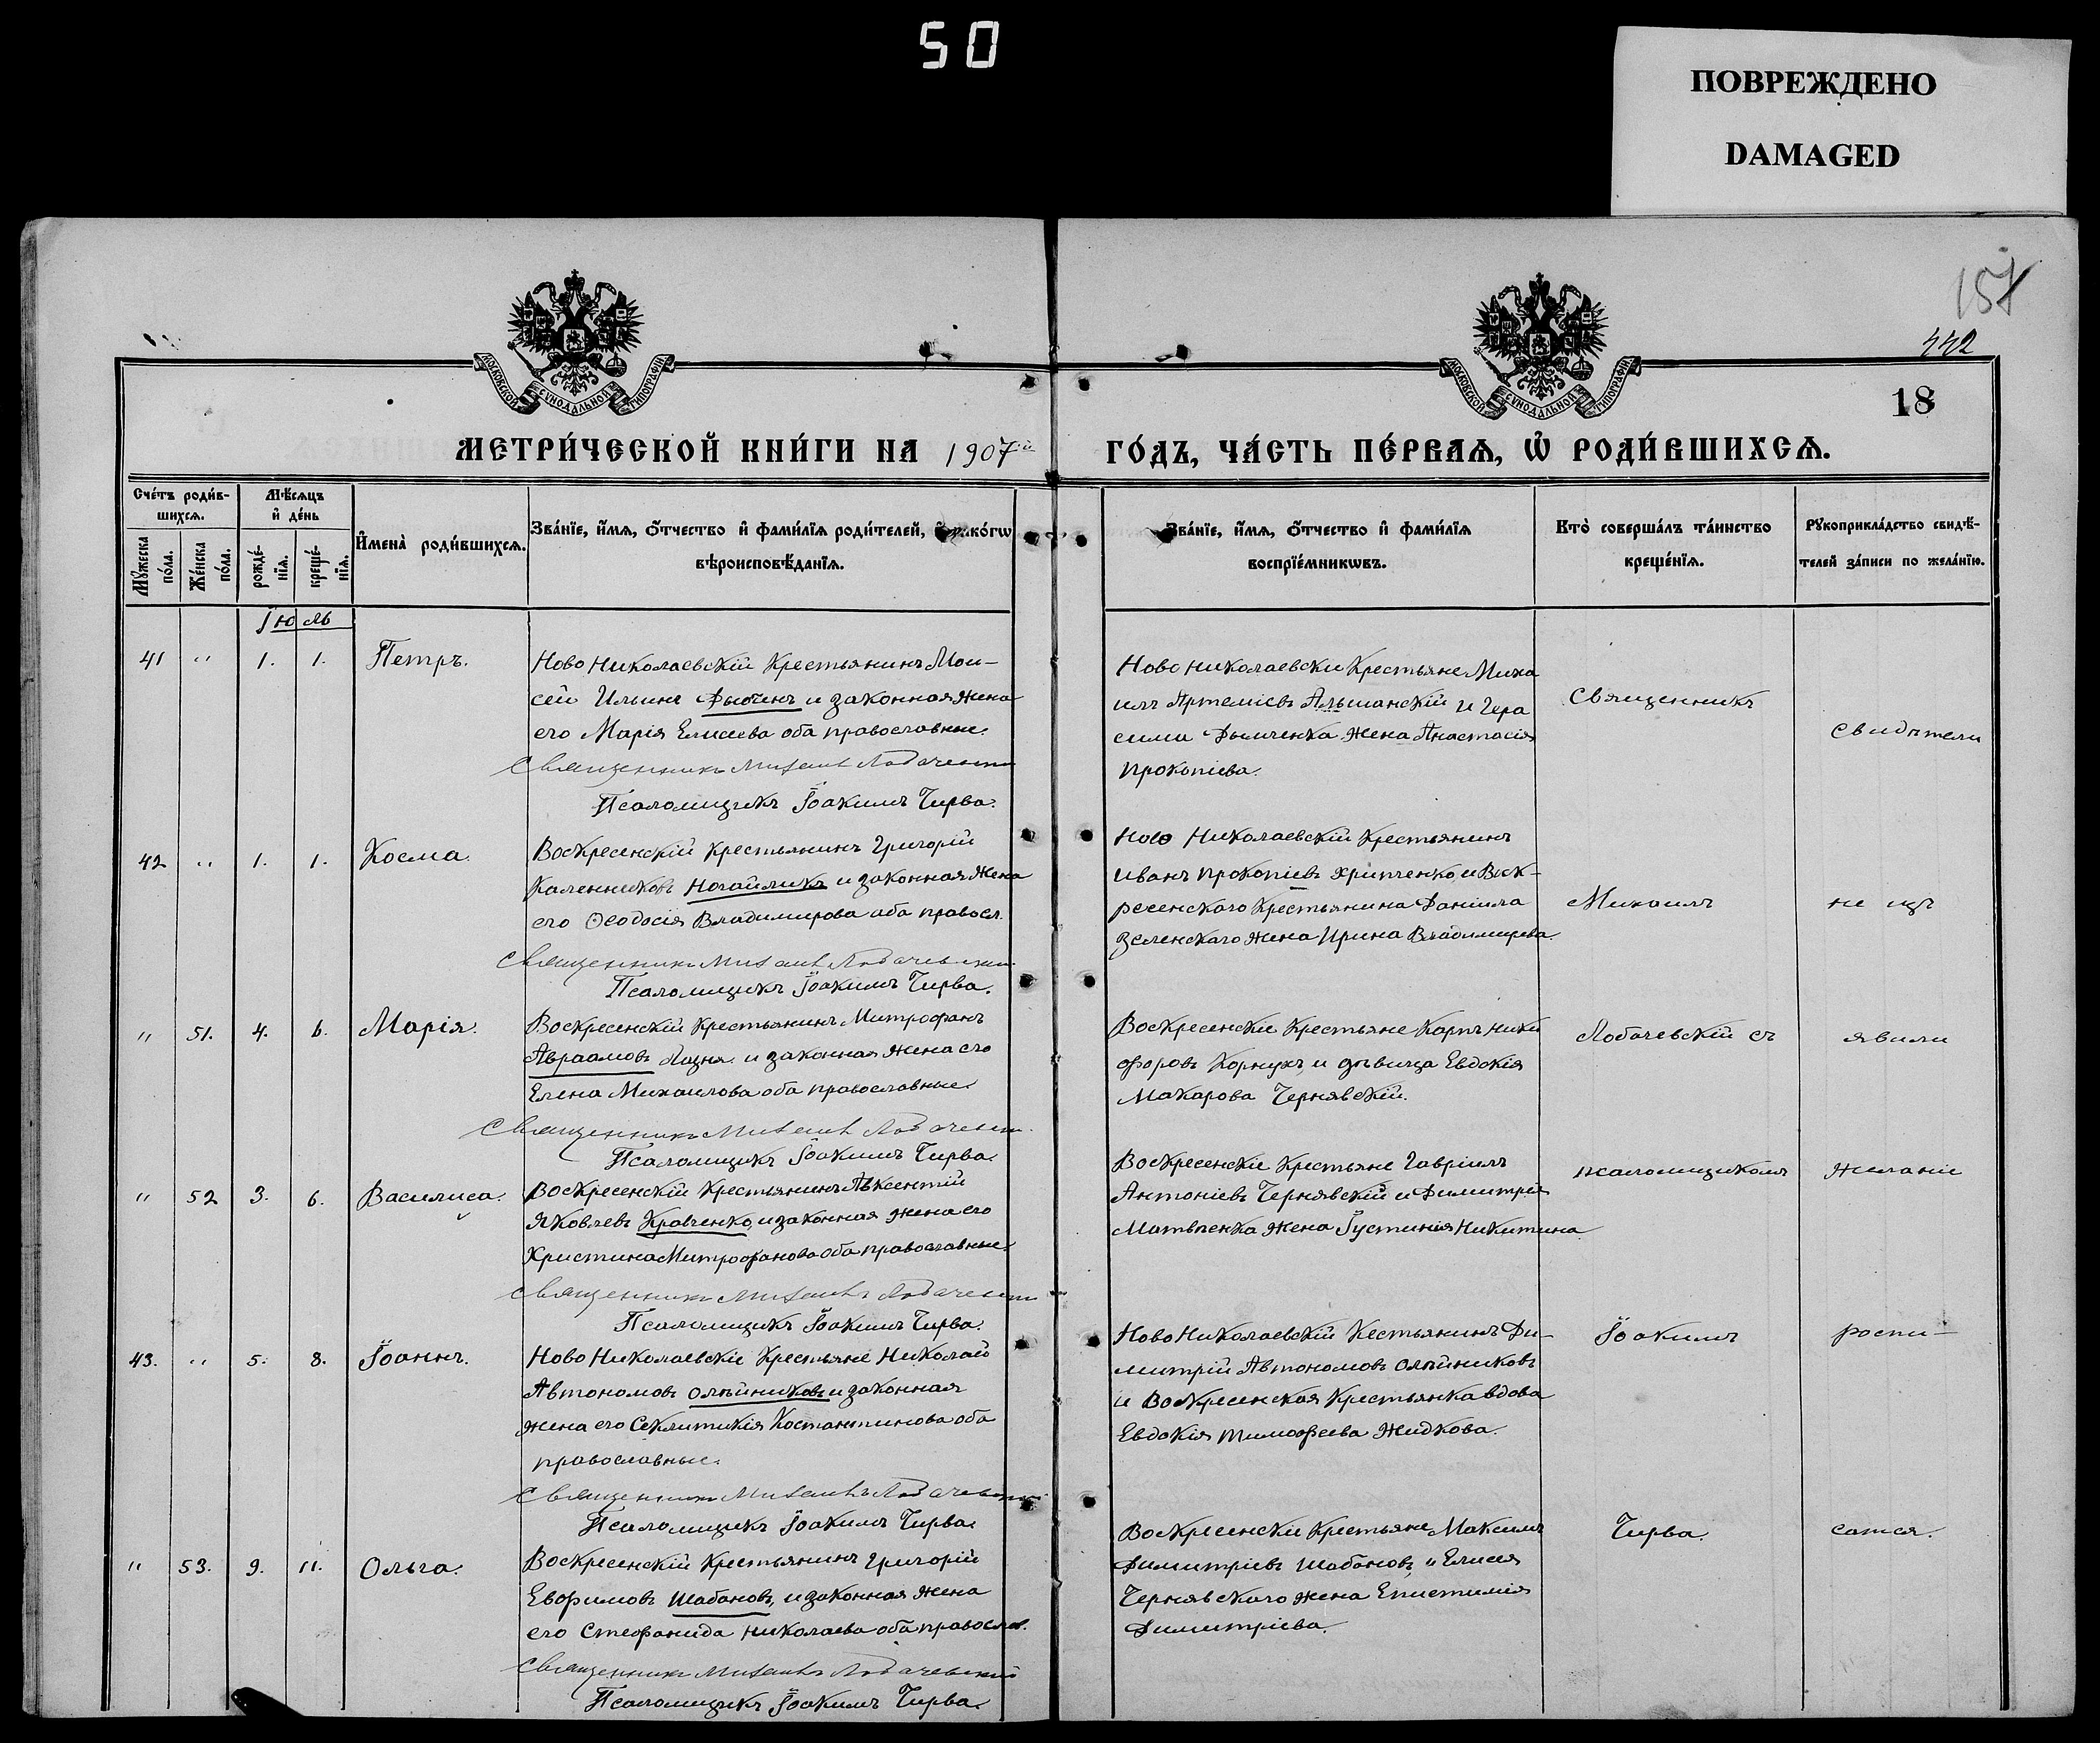 50
ПОВРЕЖДЕНО
DAMAGED
157
442
18
МОСКОВСКОЙ СѴНОДАЛЬНОЙ ТИПОГРАФІИ
МОСКОВСКОЙ СѴНОДАЛЬНОЙ ТИПОГРАФІИ
МЕТРИ́ЧЕСКОЙ КНИ́ГИ НА 1907й
ГО́ДЪ, ЧА́СТЬ ПЕ́РВАѦ, Ѿ РОДИ́ВШИХСѦ.
Сче́тъ роди́в-
шихсѧ.
Мꙋ́жеска по́ла.
Же́нска по́ла.
Мѣ́сѧцъ
и҆ де́нь
рожде́-нїѧ.
креще́-нїѧ.
И҆мена̀ роди́вшихсѧ.
Зва́нїе, и҆́мѧ, ѻ҆́тчество и҆ фами́лїѧ роди́телей, и҆ како́гѡ
вѣроисповѣ́данїѧ.
Зва́нїе, и҆́мѧ, ѻ҆́тчество и҆ фами́лїѧ
воспрїе́мникѡвъ.
Кто̀ соверша́лъ та́инство
креще́нїѧ.
Рꙋкоприкла́дство свидѣ́-
телей за́писи по жела́нїю.
Іюль
41 " 1. 1. Петръ.
Ново Николаевскій Крестьянинъ Мои-
сей Ильинъ и законная жена
его Марія Елисеева оба православные.
Священникъ Михаилъ Лобачевскій
Псаломщикъ Іоакимъ Чирва.
Ново Николаевски Крестьяне Миха
илъ Артеміевъ Альшанскій и Гера
сима Дымченка жена Анастасія
Прокопіева.
42 " 1. 1. Косма.
Воскресенскій Крестьянинъ Григорій
Каленниковъ Ногайликъ и законная жена
его Ѳеодосія Владимирова оба правосл.
Священникъ Михаилъ Лобачевскій
Псаломщикъ Іоакимъ Чирва.
Ново Николаевскій Крестьянинъ
Иванъ Прокопіевъ Хрипченко, и Воск-
ресенскаго Крестьянина Даніила
Зеленскаго жена Ирина Владимирова.
" 51. 4. 6. Марія.
Воскресенскій Крестьянинъ Митрофанъ
Авраамовъ Лазня и законная жена его
Елена Михаилова оба православные.
Священникъ Михаилъ Лобачевскій
Псаломщикъ Іоакимъ Чирва.
Воскресенскіе Крестьяне Карпъ Ники
форовъ Корнухъ, и дѣвица Евдокія
Макарова Чернявскій.
" 52 3. 6. Василиса.
Воскресенскій Крестьянинъ Авксентій
Яковлевъ Кравченко, и законная жена его
Христина Митрофанова оба православные.
Священникъ Михаилъ Лобачевскій
Псаломщикъ Іоакимъ Чирва.
Воскресенскіе Крестьяне Гавріилъ
Антоніевъ Чернявскій и Димитрія
Матвѣенка жена Іустинія Никитина
43. " 5. 8. Іоаннъ.
Ново Николаевскіе Крестьяне Николай
Автономовъ Олѣйниковъ и законная
жена его Секлитикія Костантинова оба
православные.
Священникъ Михаилъ Лобачевскій
Псаломщикъ Іоакимъ Чирва.
Ново Николаевскій Кестьянинъ Ди-
митрій Автономовъ Олѣйниковъ
и Воскресенская Крестьянка вдова
Евдокія Тимофеева Жидкова.
" 53. 9. 11. Ольга.
Воскресенскій Крестьянинъ Григорій
Евфимовъ Шабановъ, и законная жена
его Стефанида Николаева оба правосл.
Священникъ Михаилъ Лобачевскій
Псаломщикъ Іоакимъ Чирва.
Воскресенскіе Крестьяне Максимъ
Димитріевъ Шабановъ, и Елисея
Чернявскаго жена Епистимія
Димитріева.
Священникъ
Михаилъ
Лобачевскій съ
псаломщикомъ
Іоакимъ
Чирва.
Свидѣтели
не изъ
явили
желаніе
роспи-
сатся.